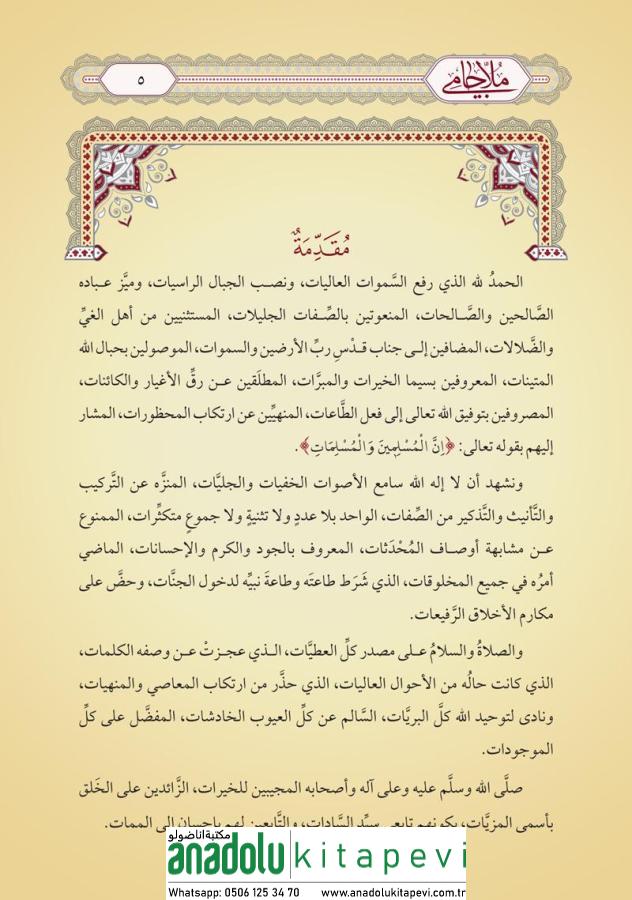 ملا جامي
٥
مُقَدِّمَةٌ
الحمدُ لله الذي رفع السَّموات العاليات، ونصب الجبال الراسيات، وميَّز عباده
الصَّالحين والصَّالحات، المنعوتين بالصِّفات الجليلات، المستثنيين من أهل الغيِّ
والضَّلالات، المضافين إلى جناب قدْسِ ربِّ الأرضين والسموات، الموصولين بحبال الله
المتينات، المعروفين بسيما الخيرات والمبرَّات، المطلَقين عن رقِّ الأغيار والكائنات،
المصروفين بتوفيق الله تعالى إلى فعل الطَّاعات، المنهيِّين عن ارتكاب المحظورات، المشار
إليهم بقوله تعالى: ﴿اِنَّ الْمُسْلِمِينَ وَالْمُسْلِمَاتِ﴾.
ونشهد أن لا إله الله سامع الأصوات الخفيات والجليَّات، المنزَّه عن التَّركيب
والتَّأنيث والتَّذكير من الصِّفات، الواحد بلا عددٍ ولا تثنيةٍ ولا جموعٍ متكثِّرات، الممنوع
عن مشابهة أوصاف المُحْدَثات، المعروف بالجود والكرم والإحسانات، الماضي
أمرُه في جميع المخلوقات، الذي شَرَط طاعتَه وطاعةَ نبيِّه لدخول الجنَّات، وحضَّ على
مكارم الأخلاق الرَّفيعات.
والصلاةُ والسلامُ على مصدر كلِّ العطيَّات، الذي عجزتْ عن وصفه الكلمات،
الذي كانت حالُه من الأحوال العاليات، الذي حذَّر من ارتكاب المعاصي والمنهيات،
ونادى لتوحيد الله كلَّ البريَّات، السَّالم عن كلِّ العيوب الخادشات، المفضَّل على كلِّ
الموجودات.
صلَّى الله وسلَّم عليه وعلى آله وأصحابه المجيبين للخيرات، الزَّائدين على الخَلق
بأسمى المزيَّات، بكونهم تابعي سيِّد السَّادات، والتَّابعين لهم بإحسان إلى الممات.
مكتبة اناضولو
anadolu kitapevi
Whatsapp: 0506 125 34 70 www.anadolukitapevi.com.tr